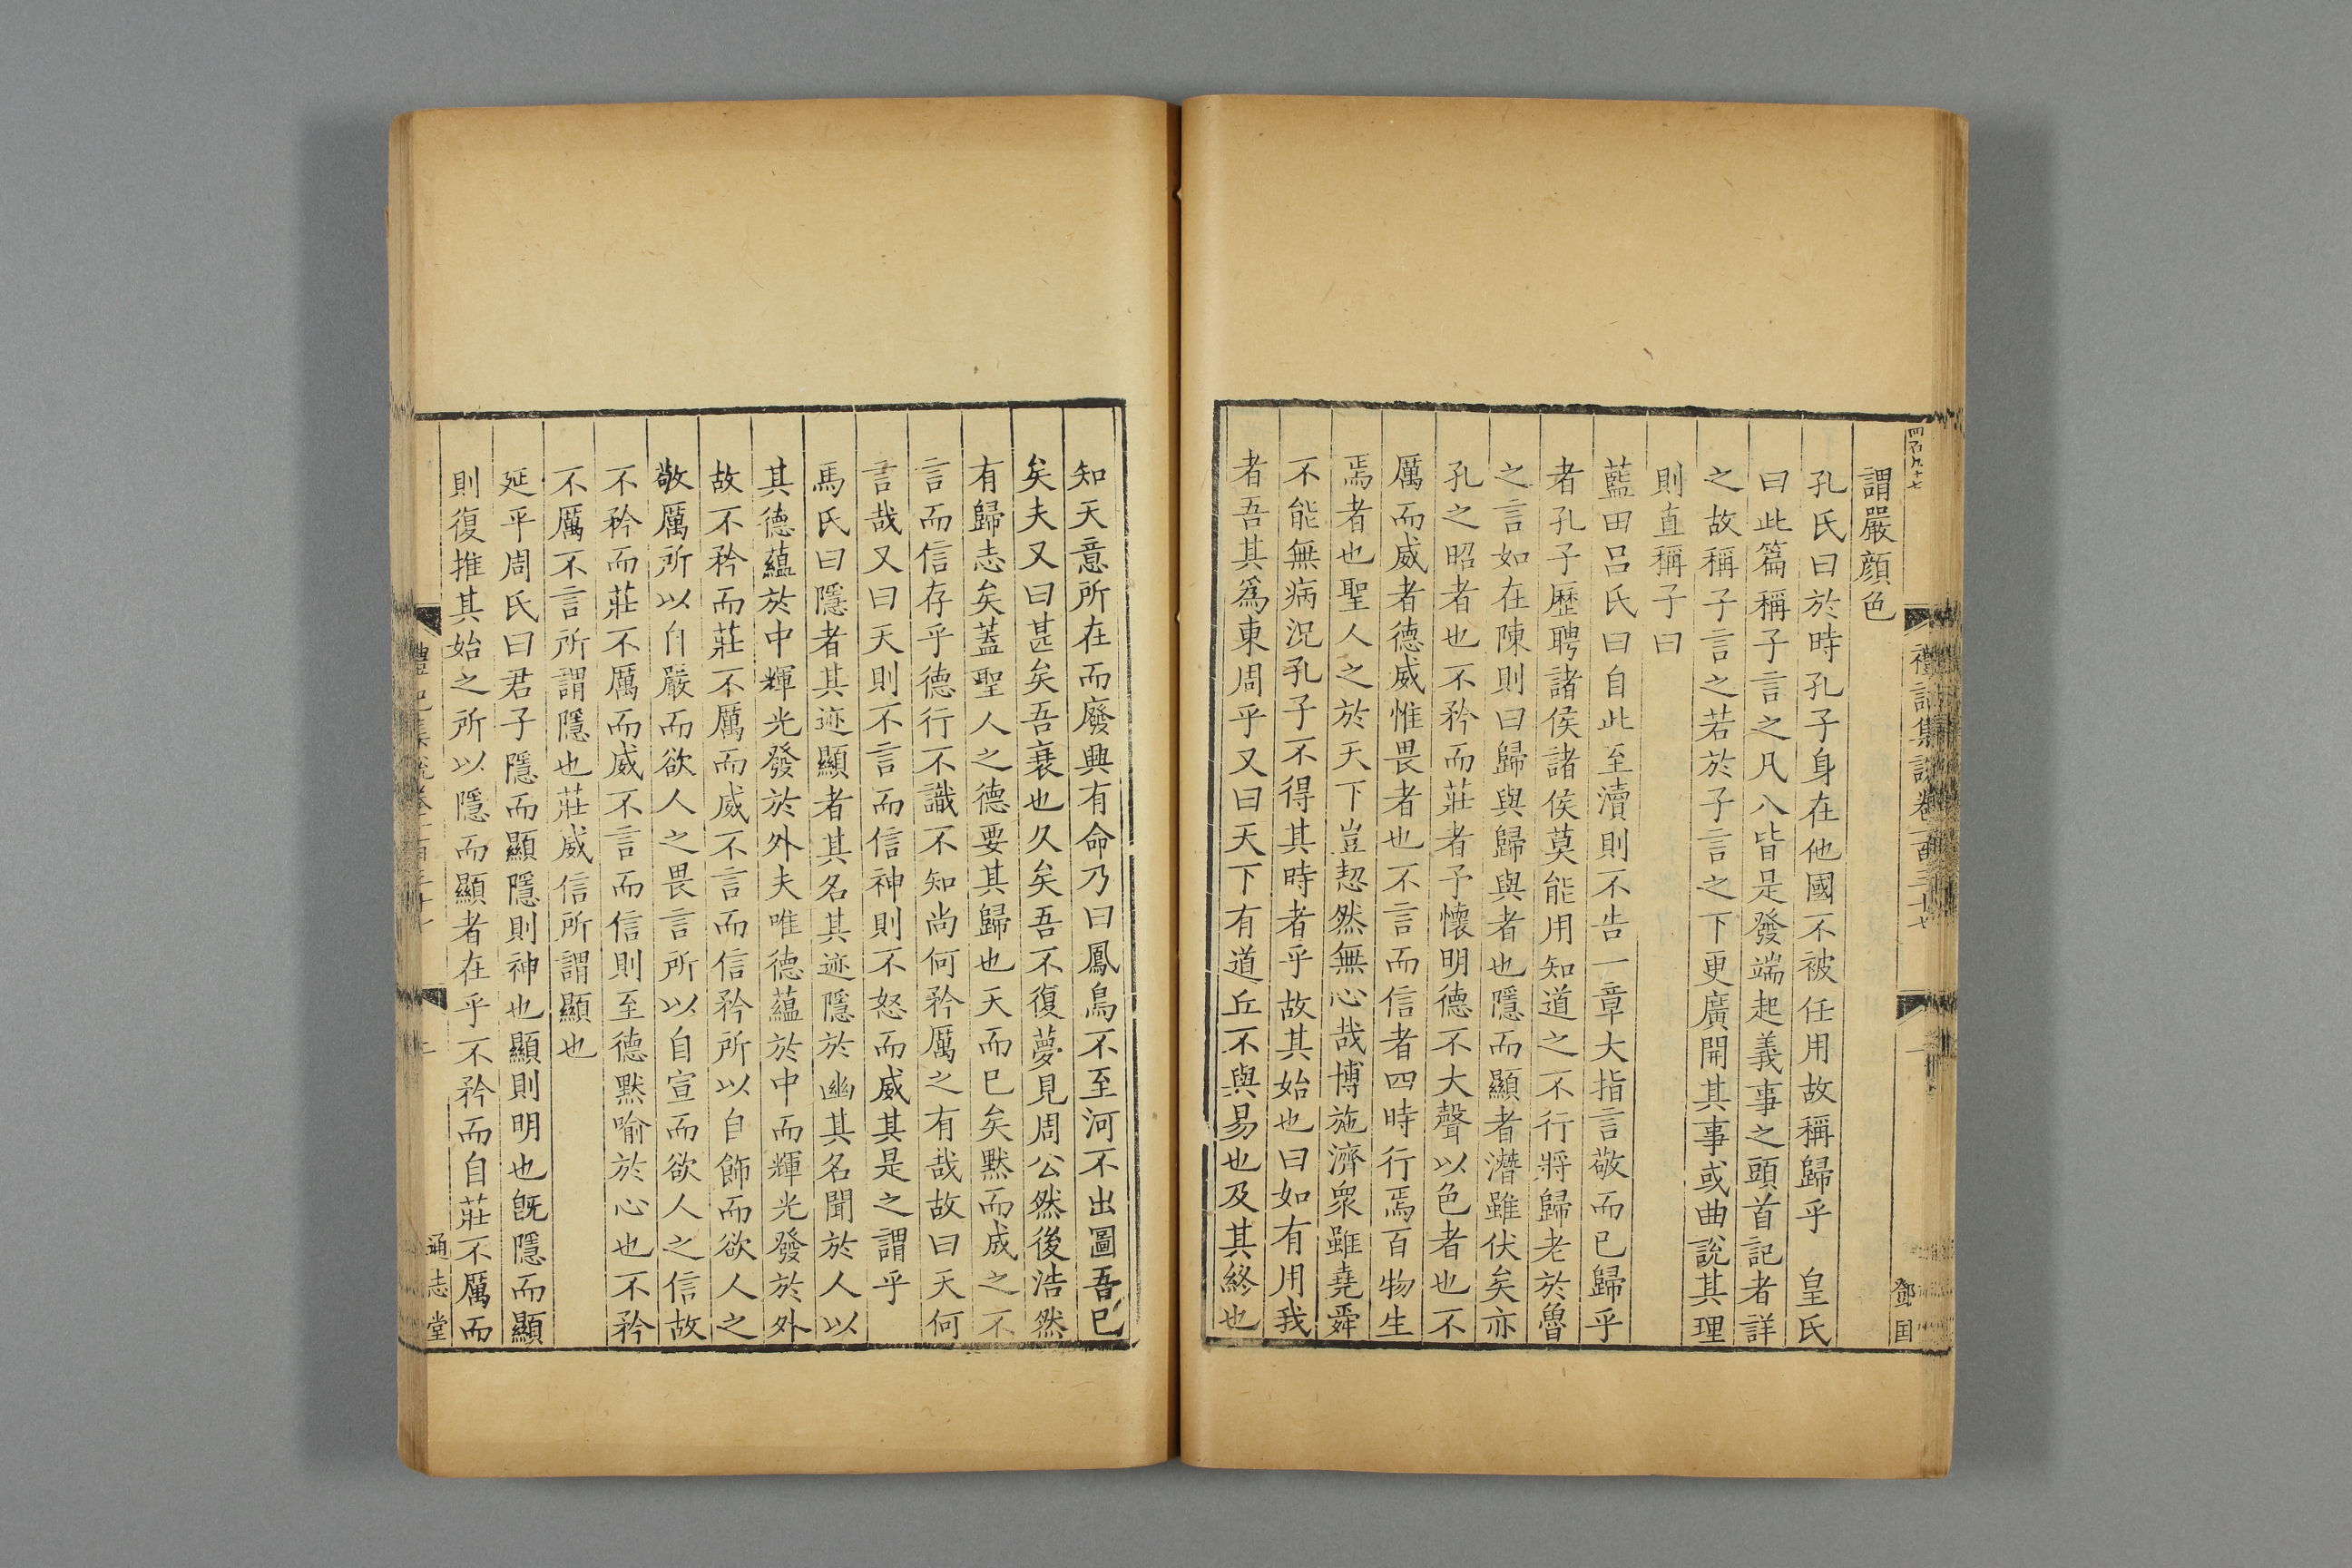 謂嚴顔色
孔氏曰於時孔子身在他國不被任用故稱歸乎　皇氏
曰此篇稱子言之凡八皆是發端起義事之頭首記者詳
之故稱子言之若於子言之下更廣開其事或曲説其理
則直稱子曰
藍田呂氏曰自此至瀆則不告一章大指言敬而已歸乎
者孔子歷聘諸侯諸侯莫能用知道之不行將歸老於魯
之言如在陳則曰歸與歸與者也隱而顯者潛雖伏矣亦
孔之昭者也不矜而莊者予懷明德不大聲以色者也不
厲而威者德威惟畏者也不言而信者四時行焉百物生
焉者也聖人之於天下豈恝然無心哉博施濟衆雖堯舜
不能無病況孔子不得其時者乎故其始也曰如有用我
者吾其爲東周乎又曰天下有道丘不與易也及其終也
禮記集説卷一百三十七
鄧国
知天意所在而廢興有命乃曰鳳鳥不至河不出圖吾已
矣夫又曰甚矣吾衰也久矣吾不復夢見周公然後浩然
有歸志矣蓋聖人之德要其歸也天而已矣黙而成之不
言而信存乎德行不識不知尚何矜厲之有哉故曰天何
言哉又曰天則不言而信神則不怒而威其是之謂乎
馬氏曰隱者其迹顯者其名其迹隱於幽其名聞於人以
其德蘊於中輝光發於外夫唯德蘊於中而輝光發於外
故不矜而莊不厲而威不言而信矜所以自飾而欲人之
敬厲所以自嚴而欲人之畏言所以自宣而欲人之信故
不矜而莊不厲而威不言而信則至德黙喻於心也不矜
不厲不言所謂隱也莊威信所謂顯也
延平周氏曰君子隱而顯隱則神也顯則明也旣隱而顯
則復推其始之所以隱而顯者在乎不矜而自莊不厲而
通志堂